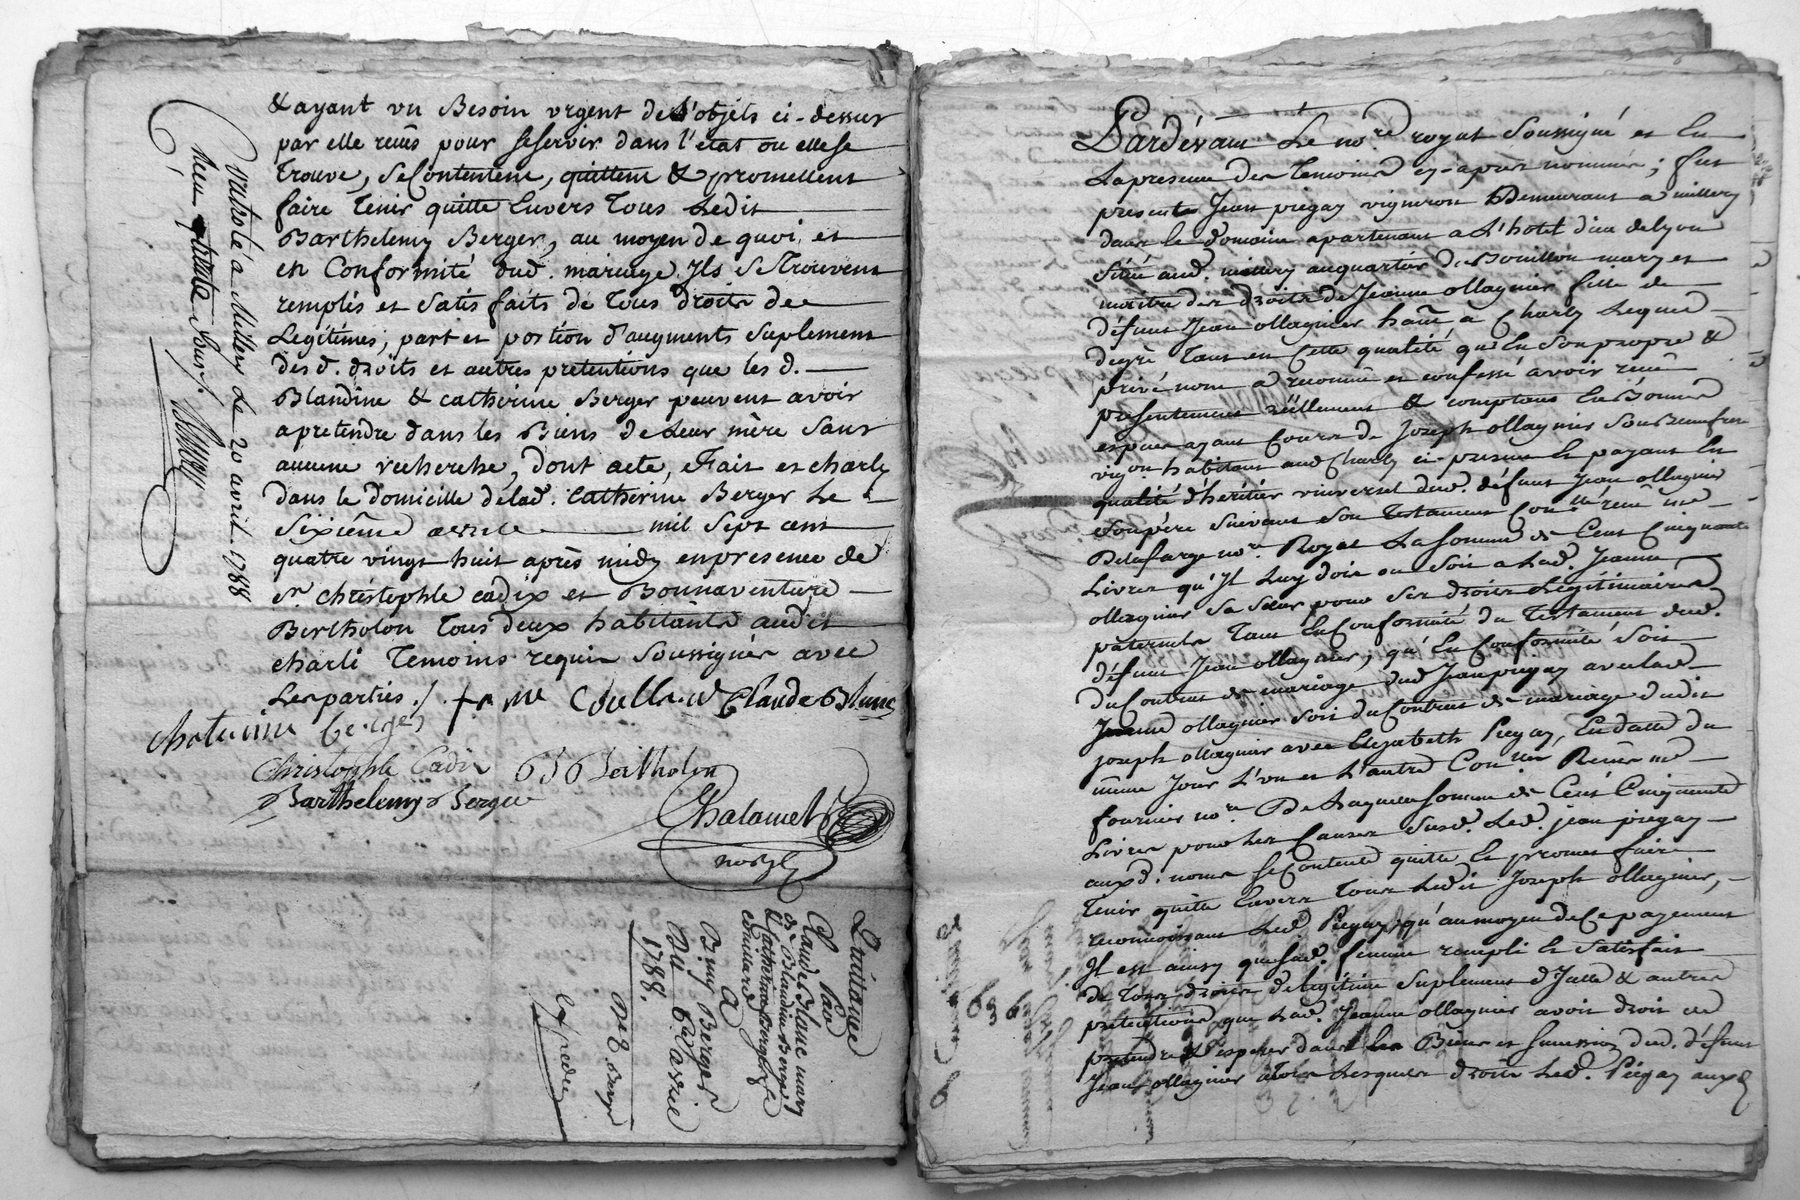 & ayant un Besoin urgent des objets ci-dessus
par elle reçus pour se servir dans l'état ou elle se
Trouve, se Contentent, quittent & promettent
faire Tenir quitte Envers Tous Ledit
Barthelemy Berger, au moyen de quoi, et
en Conformité dud. mariage Ils se Trouvent
remplis et satisfaits de Tous droits de
Legitimes, part et portion d'augments suplement
desd. droits et autres pretentions que les d.
Blandine & catherine Berger peuvent avoir
a pretendre dans les Biens de Leur mère sans
aucune recherche, dont acte, Fait et charly
dans le domicille de lad. Catherine Berger Le
sixième avril mil sept cent
quatre vingt huit après midy en presence de
Sr. christophle cadix et Bonnaventure
Bertholon Tous deux habitants audit
charli Temoins requis soussignés avec
Les parties. Claude Blanc
Catherine berger
Christophle Cadix Bertholon
Barthelemy Berger
Chalamel
noRyl
Controlé a Millery Le 20 avril 1788
Reçu quinze sous
Quittance
Par
Claude Blanc mary
de Blandine Berger
& Catherine Berger fe
couillard
A
B.my Berger
Du 6e avril
1788.
Expediée
Pardevant Le nore. royal soussigné et En
La presence des Temoins cy-après nommés; fut
present Jean piegay vigneron Demeurant a millery
dans le domaine apartenant a L'hotel dieu de Lyon
situé aud. millery au quartier de Bouillon mary et
maitre des droits de Jeanne ollagnier fille de
défunt Jean ollagnier hant. a Charly Lequel
degré Tant en Cette qualité, qu'En son propre &
privé nom a reconnu et confessé avoir reçu
presentement réellement & comptant En Bonnes
especes ayant Cours de Joseph ollagnier son Beaufrere
vigon. habitant aud. Charly ci-present Et payant En
qualité d'héritier universel dud. défunt Jean ollagnier
son père suivant son Testament Con.llé reçu me
Delafarge nore. Royal La somme de Cent Cinquante
Livres qu'Il Luy doit ou soit a Lad. Jeanne
ollagnier sa sœur pour ses droits Légitimaires
paternels Tant En Conformité du Testament dud.
défunt Jean ollagnier, qu'En Conformité soit
du Contrat de mariage dud. Jean piegay avec lad.
Jeanne ollagnier soit du Contrat de mariage dudit
joseph ollagnier avec Elizabeth Piegay, En datte du
même Jour L'un et L'autre Con.llés Reçus me
fournier nore. De Laquelle somme de Cent Cinquante
Livres pour Les Causes susd. Led. jean piegay
auxd. noms se Contente quitte Et promet faire
Tenir quitte Envers Tous Ledit Joseph ollagnier,
reconnoissant Led. Piegay qu'au moyen de Ce payement
Il est ainsy que sad. femme rempli Et satisfait
de Tous droits de legitime suplement d'Icelle & autres
pretentions que Lad. Jeanne ollagnier avoit droit de
pretendre & esperer dans les Biens et succession dud. défunt
Jean ollagnier a Tous Lesquels droits Led. Piegay auxd.